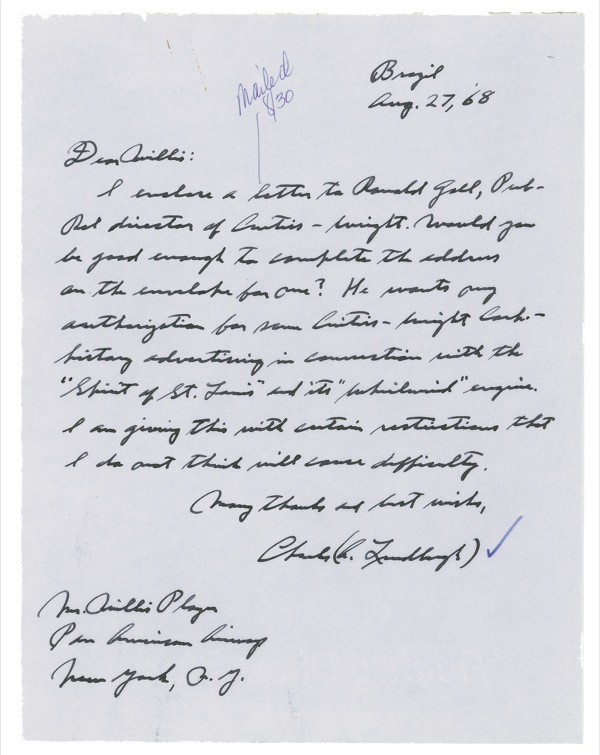 Mailed
8/30
Brazil
Aug. 27, '68
Dear Willis:
I enclose a letter to Ronald Gall, Pub-
Rel director of Curtiss-Wright. Would you
be good enough to complete the address
on the envelope for me? He wants my
authorization for some Curtiss-Wright
history advertising in connection with the
"Spirit of St. Louis" and its "Whirlwind" engine.
I am giving this with certain restrictions that
I do not think will cause difficulty.
Many thanks and best wishes,
Charles (A. Lindbergh)
Mr. Willis Player
Pan American Airways
New York, N.Y.